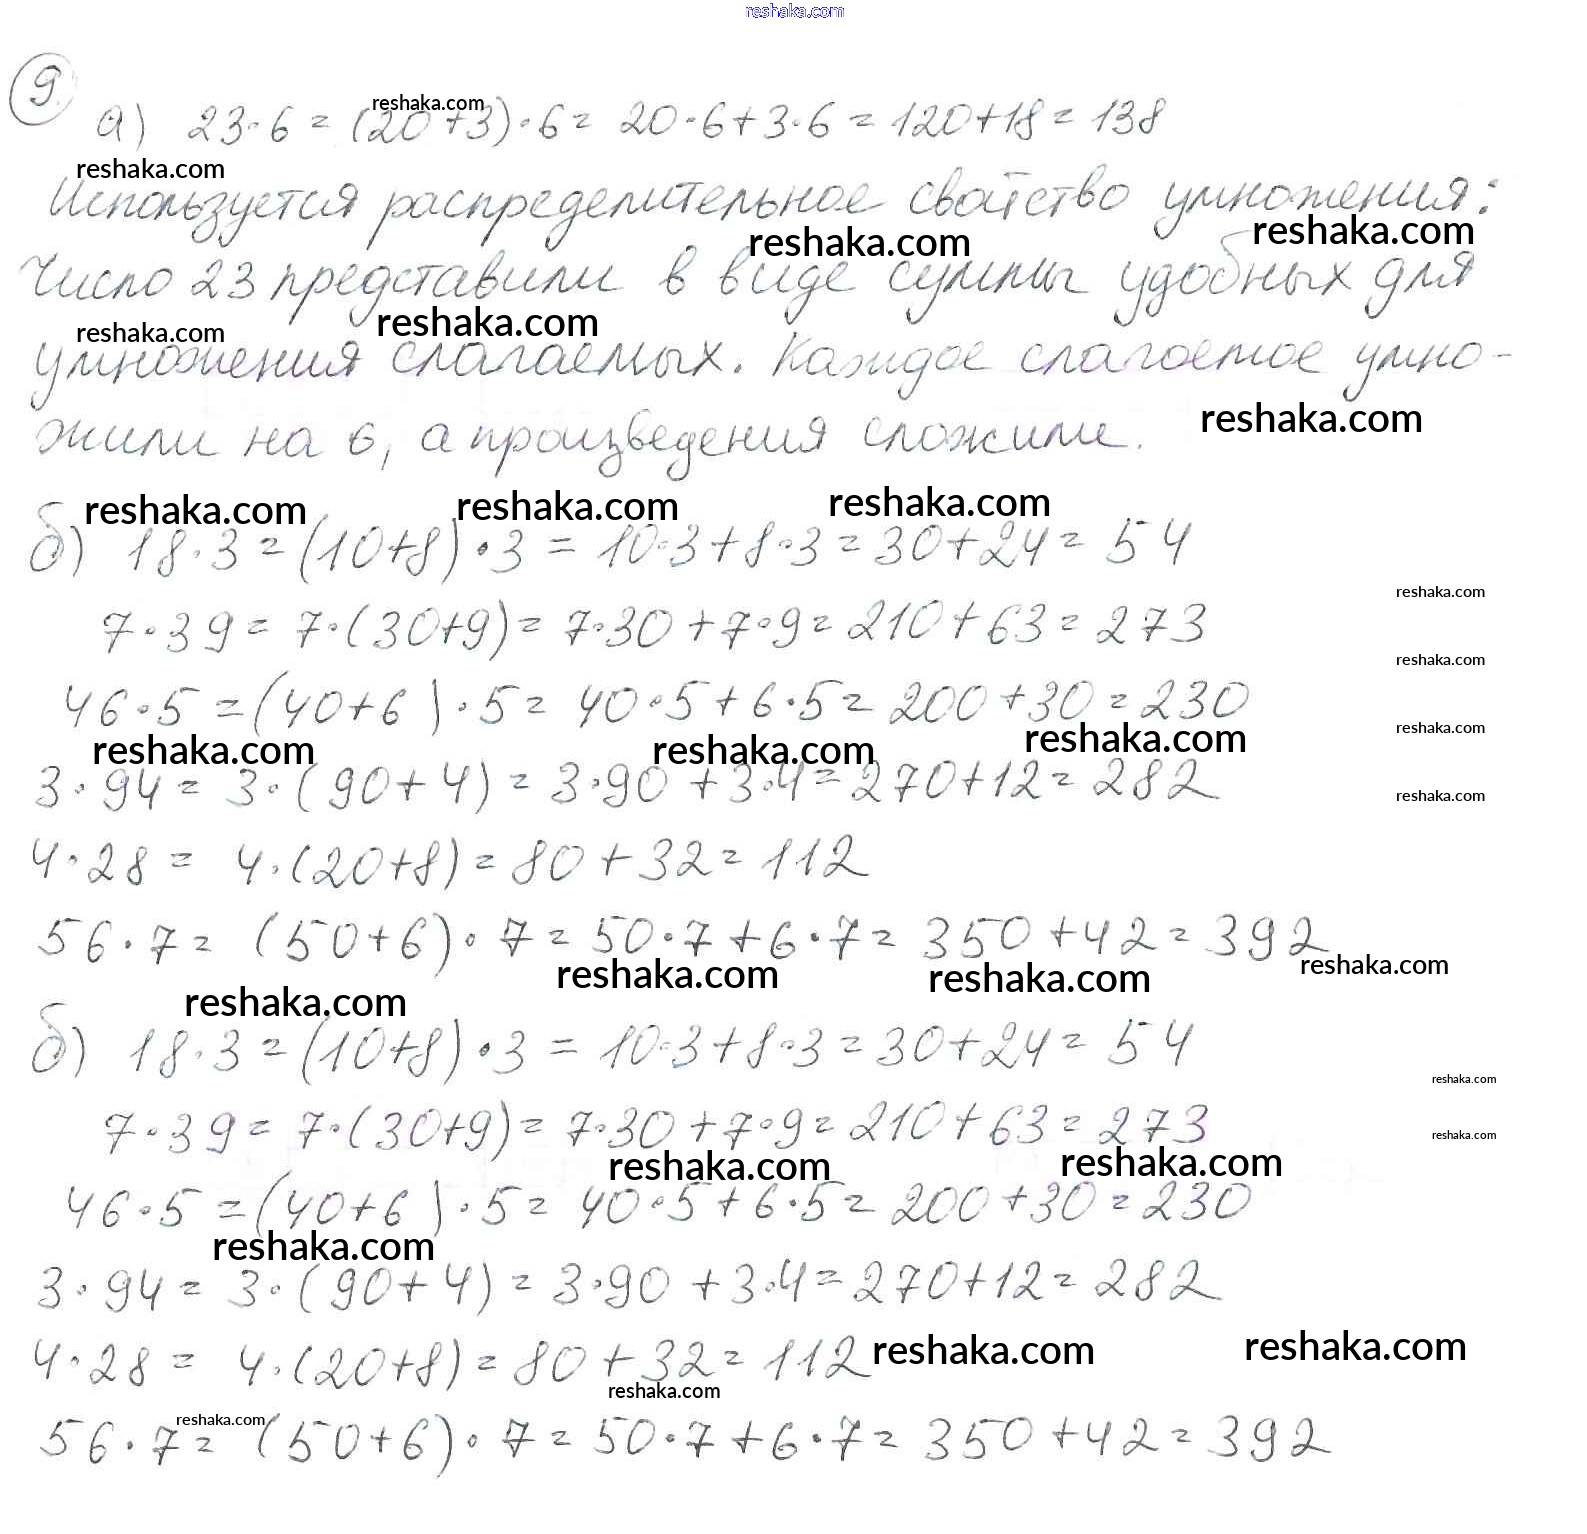 reshaka.com
9.
а) 23·6 = (20+3)·6 = 20·6+3·6 = 120+18 = 138
reshaka.com
reshaka.com
Используется распределительное свойство умножения:
reshaka.com reshaka.com
Число 23 представили в виде суммы удобных для
reshaka.com reshaka.com
умножения слагаемых. Каждое слагаемое умно-
reshaka.com
жили на 6, а произведения сложили.
reshaka.com reshaka.com reshaka.com
б) 18·3 = (10+8)·3 = 10·3+8·3 = 30+24 = 54
reshaka.com
7·39 = 7·(30+9) = 7·30+7·9 = 210+63 = 273
reshaka.com
46·5 = (40+6)·5 = 40·5+6·5 = 200+30 = 230
reshaka.com
reshaka.com reshaka.com reshaka.com
3·94 = 3·(90+4) = 3·90+3·4 = 270+12 = 282
reshaka.com
4·28 = 4·(20+8) = 80+32 = 112
56·7 = (50+6)·7 = 50·7+6·7 = 350+42 = 392
reshaka.com reshaka.com reshaka.com
reshaka.com
б) 18·3 = (10+8)·3 = 10·3+8·3 = 30+24 = 54
reshaka.com
7·39 = 7·(30+9) = 7·30+7·9 = 210+63 = 273
reshaka.com
reshaka.com reshaka.com
46·5 = (40+6)·5 = 40·5+6·5 = 200+30 = 230
reshaka.com
3·94 = 3·(90+4) = 3·90+3·4 = 270+12 = 282
4·28 = 4·(20+8) = 80+32 = 112
reshaka.com reshaka.com
reshaka.com
reshaka.com
56·7 = (50+6)·7 = 50·7+6·7 = 350+42 = 392